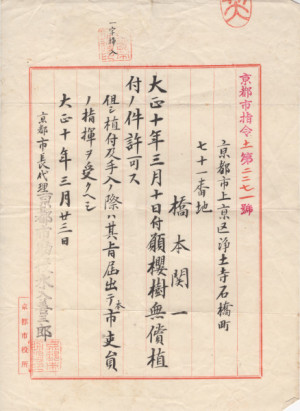 一字挿入
京都市指令土第二二七一號
京都市上京区浄土寺石橋町
七十一番地
橋本関一
大正十年三月十日付願櫻樹無償植
付ノ件許可ス
但シ植付及手入ノ際ハ其旨届出テ本市吏員
ノ指揮ヲ受クヘシ
大正十年三月廿三日
京都市長代理
京都市役所